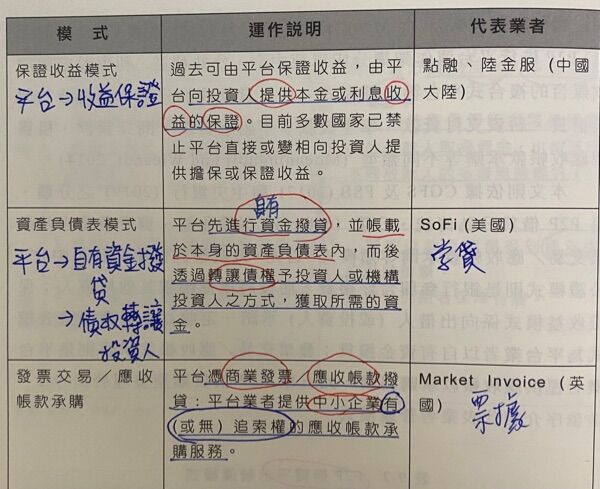 模 式
運作說明
代表業者
保證收益模式
平台→收益保證
過去可由平台保證收益，由平
台向投資人提供本金或利息收
益的保證。目前多數國家已禁
止平台直接或變相向投資人提
供擔保或保證收益。
點融、陸金服 (中國
大陸)
資產負債表模式
平台→自有資金撥
貸
→債权轉讓
投資人
自有
平台先進行資金撥貸，並帳載
於本身的資產負債表內，而後
透過轉讓債權予投資人或機構
投資人之方式，獲取所需的資
金。
SoFi (美國)
学贷
發票交易／應收
帳款承購
平台憑商業發票／應收帳款撥
貸：平台業者提供中小企業有
(或無) 追索權的應收帳款承
購服務。
Market Invoice (英
國)
票據